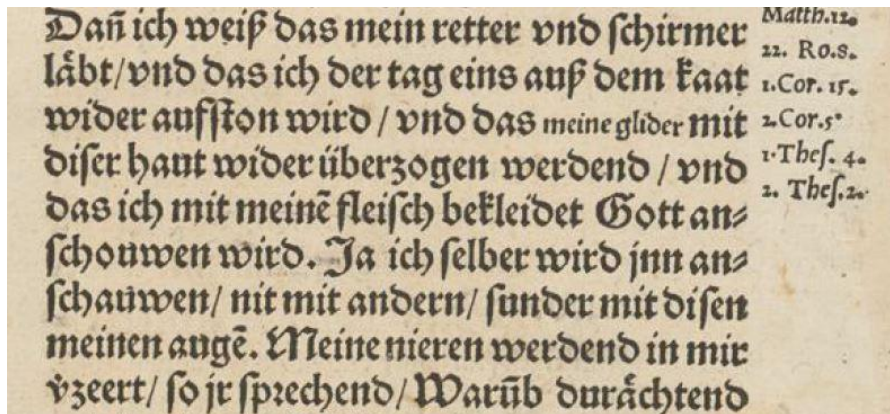 Dañ ich weiß das mein retter vnd schirmer
läbt/vnd das ich der tag eins auß dem kaat
wider aufston wird / vnd das meine glider mit
diser haut wider überzogen werdend / vnd
das ich mit meinẽ fleisch bekleidet Gott an⸗
schouwen wird. Ja ich selber wird jnn an⸗
schauwen/ nit mit andern/ sunder mit disen
meinen augẽ. Meine nieren werdend in mir
v̊zeert/ so jr sprechend/ Warũb durächtend
Matth.12.
22. Ro.8.
1.Cor. 15.
2.Cor.5.
1.Thes. 4.
2. Thes.2.